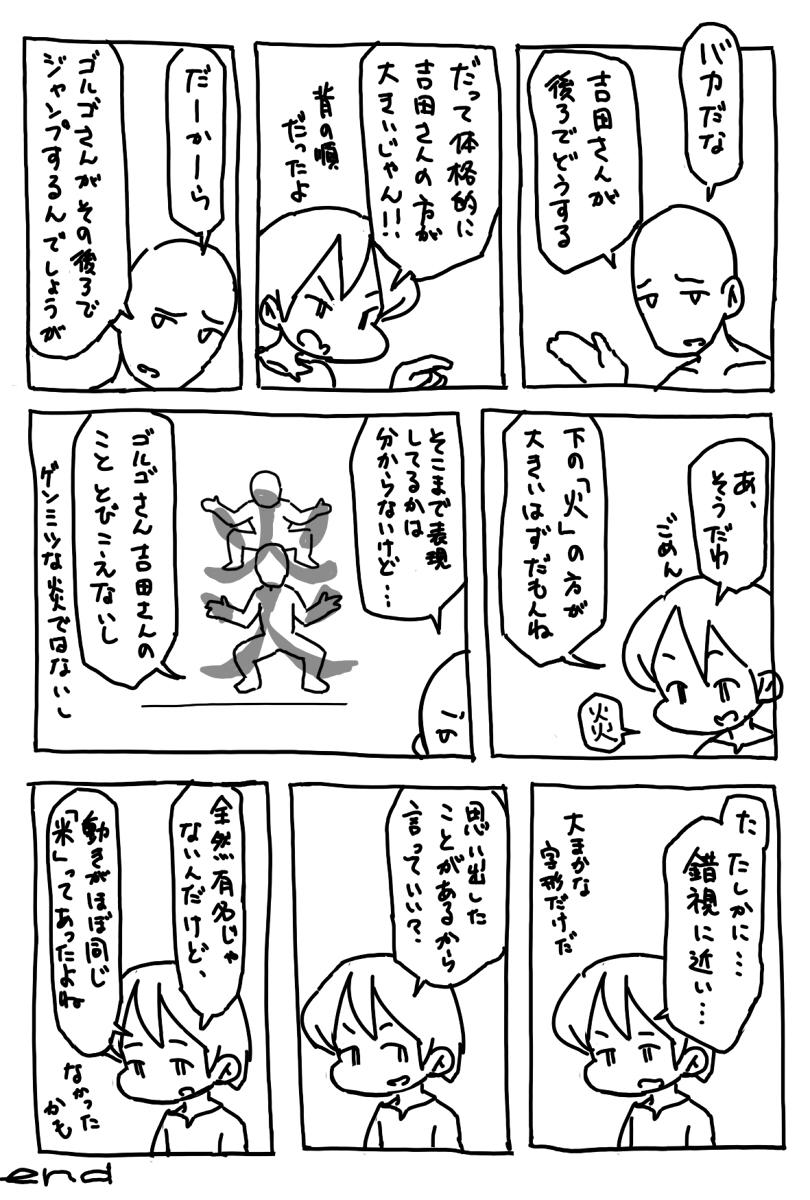 バカだな
吉田さんが
後ろでどうする
だって体格的に
吉田さんの方が
大きいじゃん!!
背の順
だったよ
だーかーら
ゴルゴさんがその後ろで
ジャンプするんでしょうが
あ、
そうだわ
ごめん
下の「火」の方が
大きいはずだもんね
炎
そこまで表現
してるかは
分からないけど…
炎
ゴルゴさん吉田さんの
こととびこえないし
ゲンミツな炎ではないし
た
たしかに…
錯視に近い…
大まかな
字形だけだ
思い出した
ことがあるから
言っていい?
全然有名じゃ
ないんだけど、
動きがほぼ同じ
「米」ってあったよね
なかった
かも
end